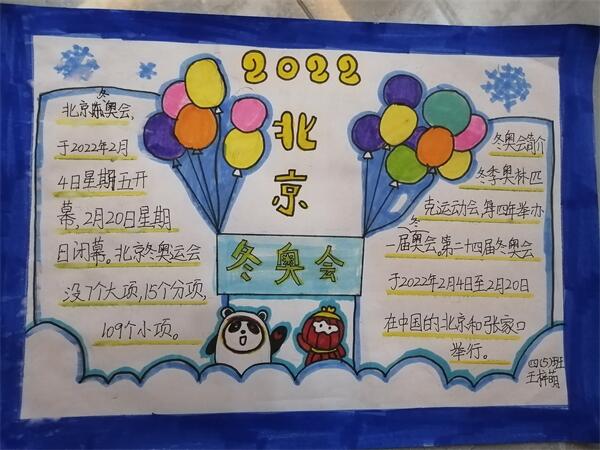 2022
北京
冬奥会
北京冬奥会,
于2022年2月
4日星期五开
幕,2月20日星期
日闭幕。北京冬奥运会
没7个大项,15个分项,
109个小项。
冬奥会简介
冬季奥林匹
克运动会,每四年举办
一届冬奥会。第二十四届冬奥会
于2022年2月4日至2月20日
在中国的北京和张家口
举行。
四(5)班
王梓萌